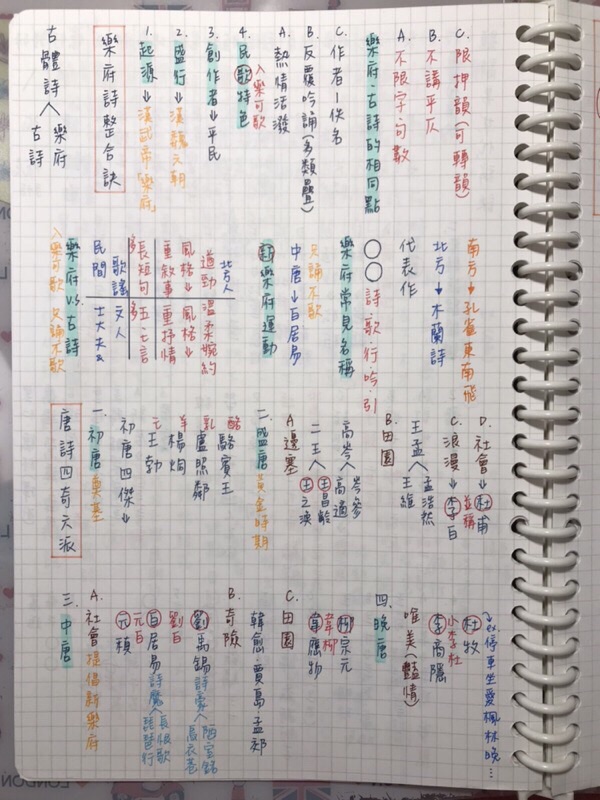 古體詩
樂府
古詩
樂府詩整合訣
1. 起源→漢武帝「樂府」
2. 盛行→漢魏六朝
3. 創作者→平民
4. 民歌特色
入樂可歌
A. 熱情活潑
B. 反覆吟誦(多類疊)
C. 作者—佚名
樂府、古詩的相同點
A. 不限字句數
B. 不講平仄
C. 限押韻(可轉韻)
入樂可歌 只誦不歌
樂府v.s.古詩
民間歌謠 文人士大夫
多長短句 多五、七言
重敘事 重抒情
風格→ 風格→
遒勁 溫柔婉約
北方人
新樂府運動
中唐→白居易
只誦不歌
樂府常見名稱
○○詩、歌、行、吟、引
代表作
北方→木蘭詩
南方→孔雀東南飛
唐詩四奇六派
一、初唐 奠基
初唐四傑→
元 王勃
羊 楊炯
乳 盧照鄰
酪 駱賓王
二、盛唐 黃金時期
A 邊塞
二王
王之渙
王昌齡
高岑
高適
岑參
B. 田園
王孟
王維
孟浩然
C. 浪漫→李白
並稱
D. 社會→杜甫
三、中唐
A. 社會 提倡新樂府
元稹
元白
白居易 詩魔
琵琶行
長恨歌
劉白
劉禹錫 詩豪
烏衣巷
陋室銘
B. 奇險
韓愈、賈島、孟郊
C. 田園
韋應物
韋柳
柳宗元
四、晚唐
唯美(豔情)
李商隱
小李杜
杜牧
停車坐愛楓林晚…